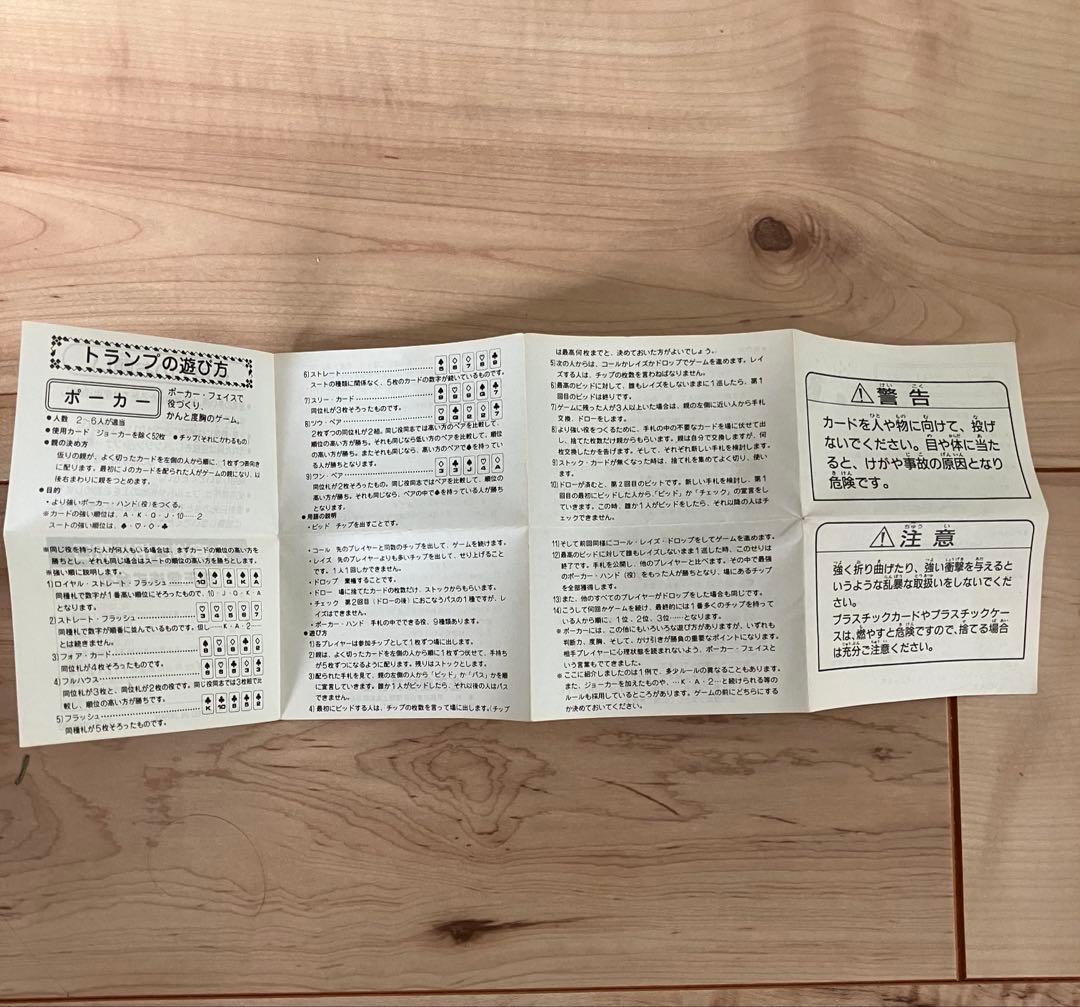 トランプの遊び方
ポーカー
ポーカー・フェイスで
役づくり、
かんと度胸のゲーム。
●人数 2〜6人が適当
●使用カード ジョーカーを除く52枚 ●チップ(それにかわるもの)
●親の決め方
仮りの親が、よく切ったカードを左側の人から順に、1枚ずつ表向き
に配ります。最初にJのカードを配られた人がゲームの親になり、以
後右まわりに親をつとめます。
●目的
・より強いポーカー・ハンド(役)をつくる。
※カードの強い順位は、A・K・Q・J・10……2
スートの強い順位は、♠・♡・◇・♣
※同じ役を持った人が何人もいる場合は、まずカードの順位の高い方を
勝ちとし、それも同じ場合はスートの順位の高い方を勝ちとします。
※強い順に説明します。
1)ロイヤル・ストレート・フラッシュ……… ♠10 ♠J ♠Q ♠K ♠A
同種札で数字が1番高い順位にそろったもので、10・J・Q・K・A
となります。
2)ストレート・フラッシュ……… ♡3 ♡4 ♡5 ♡6 ♡7
同種札で数字が順番に並んでいるものです。但し…K・A・2…
とは続きません。
3)フォア・カード………
同位札が4枚そろったものです。
4)フルハウス………
同位札が3枚と、同位札が2枚の役です。同じ役同志では3枚組で比
較し、順位の高い方が勝ちです。
5)フラッシュ……… ♠K ♠10 ♠8 ♠5 ♠2
同種札が5枚そろったものです。
6)ストレート………
スートの種類に関係なく、5枚のカードの数字が続いているものです。
7)スリー・カード………
同位札が3枚そろったものです。
8)ツウ・ペア………
2枚ずつの同位札が2組。同じ役同志では高い方のペアを比較して、
順位の高い方が勝ち。それも同じなら低い方のペアを比較して、順位
の高い方が勝ち。またそれも同じなら、高い方のペアで♠を持ってい
る人が勝ちとなります。
9)ワン・ペア………
同位札が2枚そろったもの。同じ役同志ではペアを比較して、順位の
高い方が勝ち。それも同じなら、ペアの中で♠を持っている人が勝ち
となります。
●用語の説明
・ビッド チップを出すことです。
・コール 先のプレイヤーと同数のチップを出して、ゲームを続けます。
・レイズ 先のプレイヤーよりも多いチップを出して、せり上げること
です。1人1回しかできません。
・ドロップ 棄権することです。
・ドロー 場に捨てたカードの枚数だけ、ストックからもらいます。
・チェック 第2回目(ドローの後)におこなうパスの1種ですが、レ
イズはできません。
・ポーカー・ハンド 手札の中でできる役、9種類あります。
●遊び方
1)各プレイヤーは参加チップとして1枚ずつ場に出します。
2)親は、よく切ったカードを左側の人から順に1枚ずつ伏せて、手持ち
が5枚ずつになるように配ります。残りはストックとします。
3)配られた手札を見て、親の左側の人から「ビッド」か「パス」かを順
に宣言していきます。誰か1人がビッドしたら、それ以後の人はパス
できません。
4)最初にビッドする人は、チップの枚数を言って場に出します。(チップ
は最高何枚までと、決めておいた方がよいでしょう。
5)次の人からは、コールかレイズかドロップでゲームを進めます。レイ
ズする人は、チップの枚数を言わねばなりません。
6)最高のビッドに対して、誰もレイズをしないままに1巡したら、第1
回目のビッドは終りです。
7)ゲームに残った人が3人以上いた場合は、親の左側に近い人から手札
交換、ドローをします。
8)より強い役をつくるために、手札の中の不要なカードを場に伏せて出
し、捨てた枚数だけ親からもらいます。親は自分で交換しますが、何
枚交換したかを告げます。そして、それぞれ新しい手札を検討します。
9)ストック・カードが無くなった時は、捨て札を集めてよく切り、使い
ます。
10)ドローが済むと、第2回目のビットです。新しい手札を検討し、第1
回目の最初にビッドした人から、「ビッド」か「チェック」の宣言をし
ていきます。この時、誰か1人がビッドをしたら、それ以降の人はチ
ェックできません。
11)そして前回同様にコール・レイズ・ドロップをしてゲームを進めます。
12)最高のビッドに対して誰もレイズしないまま1巡した時、このせりは
終了です。手札を公開し、他のプレイヤーと比べます。その中で最強
のポーカー・ハンド(役)をもった人が勝ちとなり、場にあるチップ
を全部獲得します。
13)また、他のすべてのプレイヤーがドロップをした場合も同じです。
14)こうして何回かゲームを続け、最終的には1番多くのチップを持って
いる人から順に、1位、2位、3位……となります。
※ポーカーには、この他にもいろいろな遊び方がありますが、いずれも
判断力、度胸、そして、かけ引きが勝負の重要なポイントになります。
相手プレイヤーに心理状態を読まれないよう、ポーカー・フェイスと
いう言葉もでてきました。
※ここに紹介しましたのは1例で、多少ルールの異なることもあります。
また、ジョーカーを加えたものや、…K・A・2…と続けられる等の
ルールも採用しているところがあります。ゲームの前にどちらにする
か決めておいてください。
⚠警告
カードを人や物に向けて、投げ
ないでください。目や体に当た
ると、けがや事故の原因となり
危険です。
⚠注意
強く折り曲げたり、強い衝撃を与えると
いうような乱暴な取扱いをしないでくだ
さい。
プラスチックカードやプラスチックケー
スは、燃やすと危険ですので、捨てる場合
は充分ご注意ください。